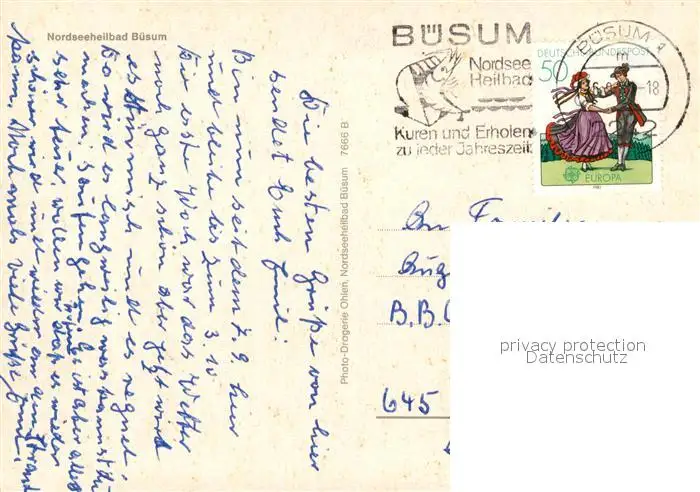 Nordseeheilbad Büsum
BÜSUM
Nordsee
Heilbad
Kuren und Erholen
zu jeder Jahreszeit
BÜSUM 1
m
-18
DEUTSCHE BUNDESPOST
50
EUROPA
1981
Photo-Drogerie Ohlen, Nordseeheilbad Büsum 7666 B
Die besten Grüße von hier
sendet Euch
Bin nun seit dem 7. 9. hier
und bleibe bis zum 3. 10
Die erste Woche war das Wetter
noch ganz schön aber jetzt wird
es stürmisch und es regnet.
Da wird es langweilig was kannst du
machen, saufen gehen, ist aber alles
sehr teuer, wollen wir das es wieder
schöner wird und wieder am Strand
kann. Noch mals viele Grüße
B.B.
645
privacy protection
Datenschutz